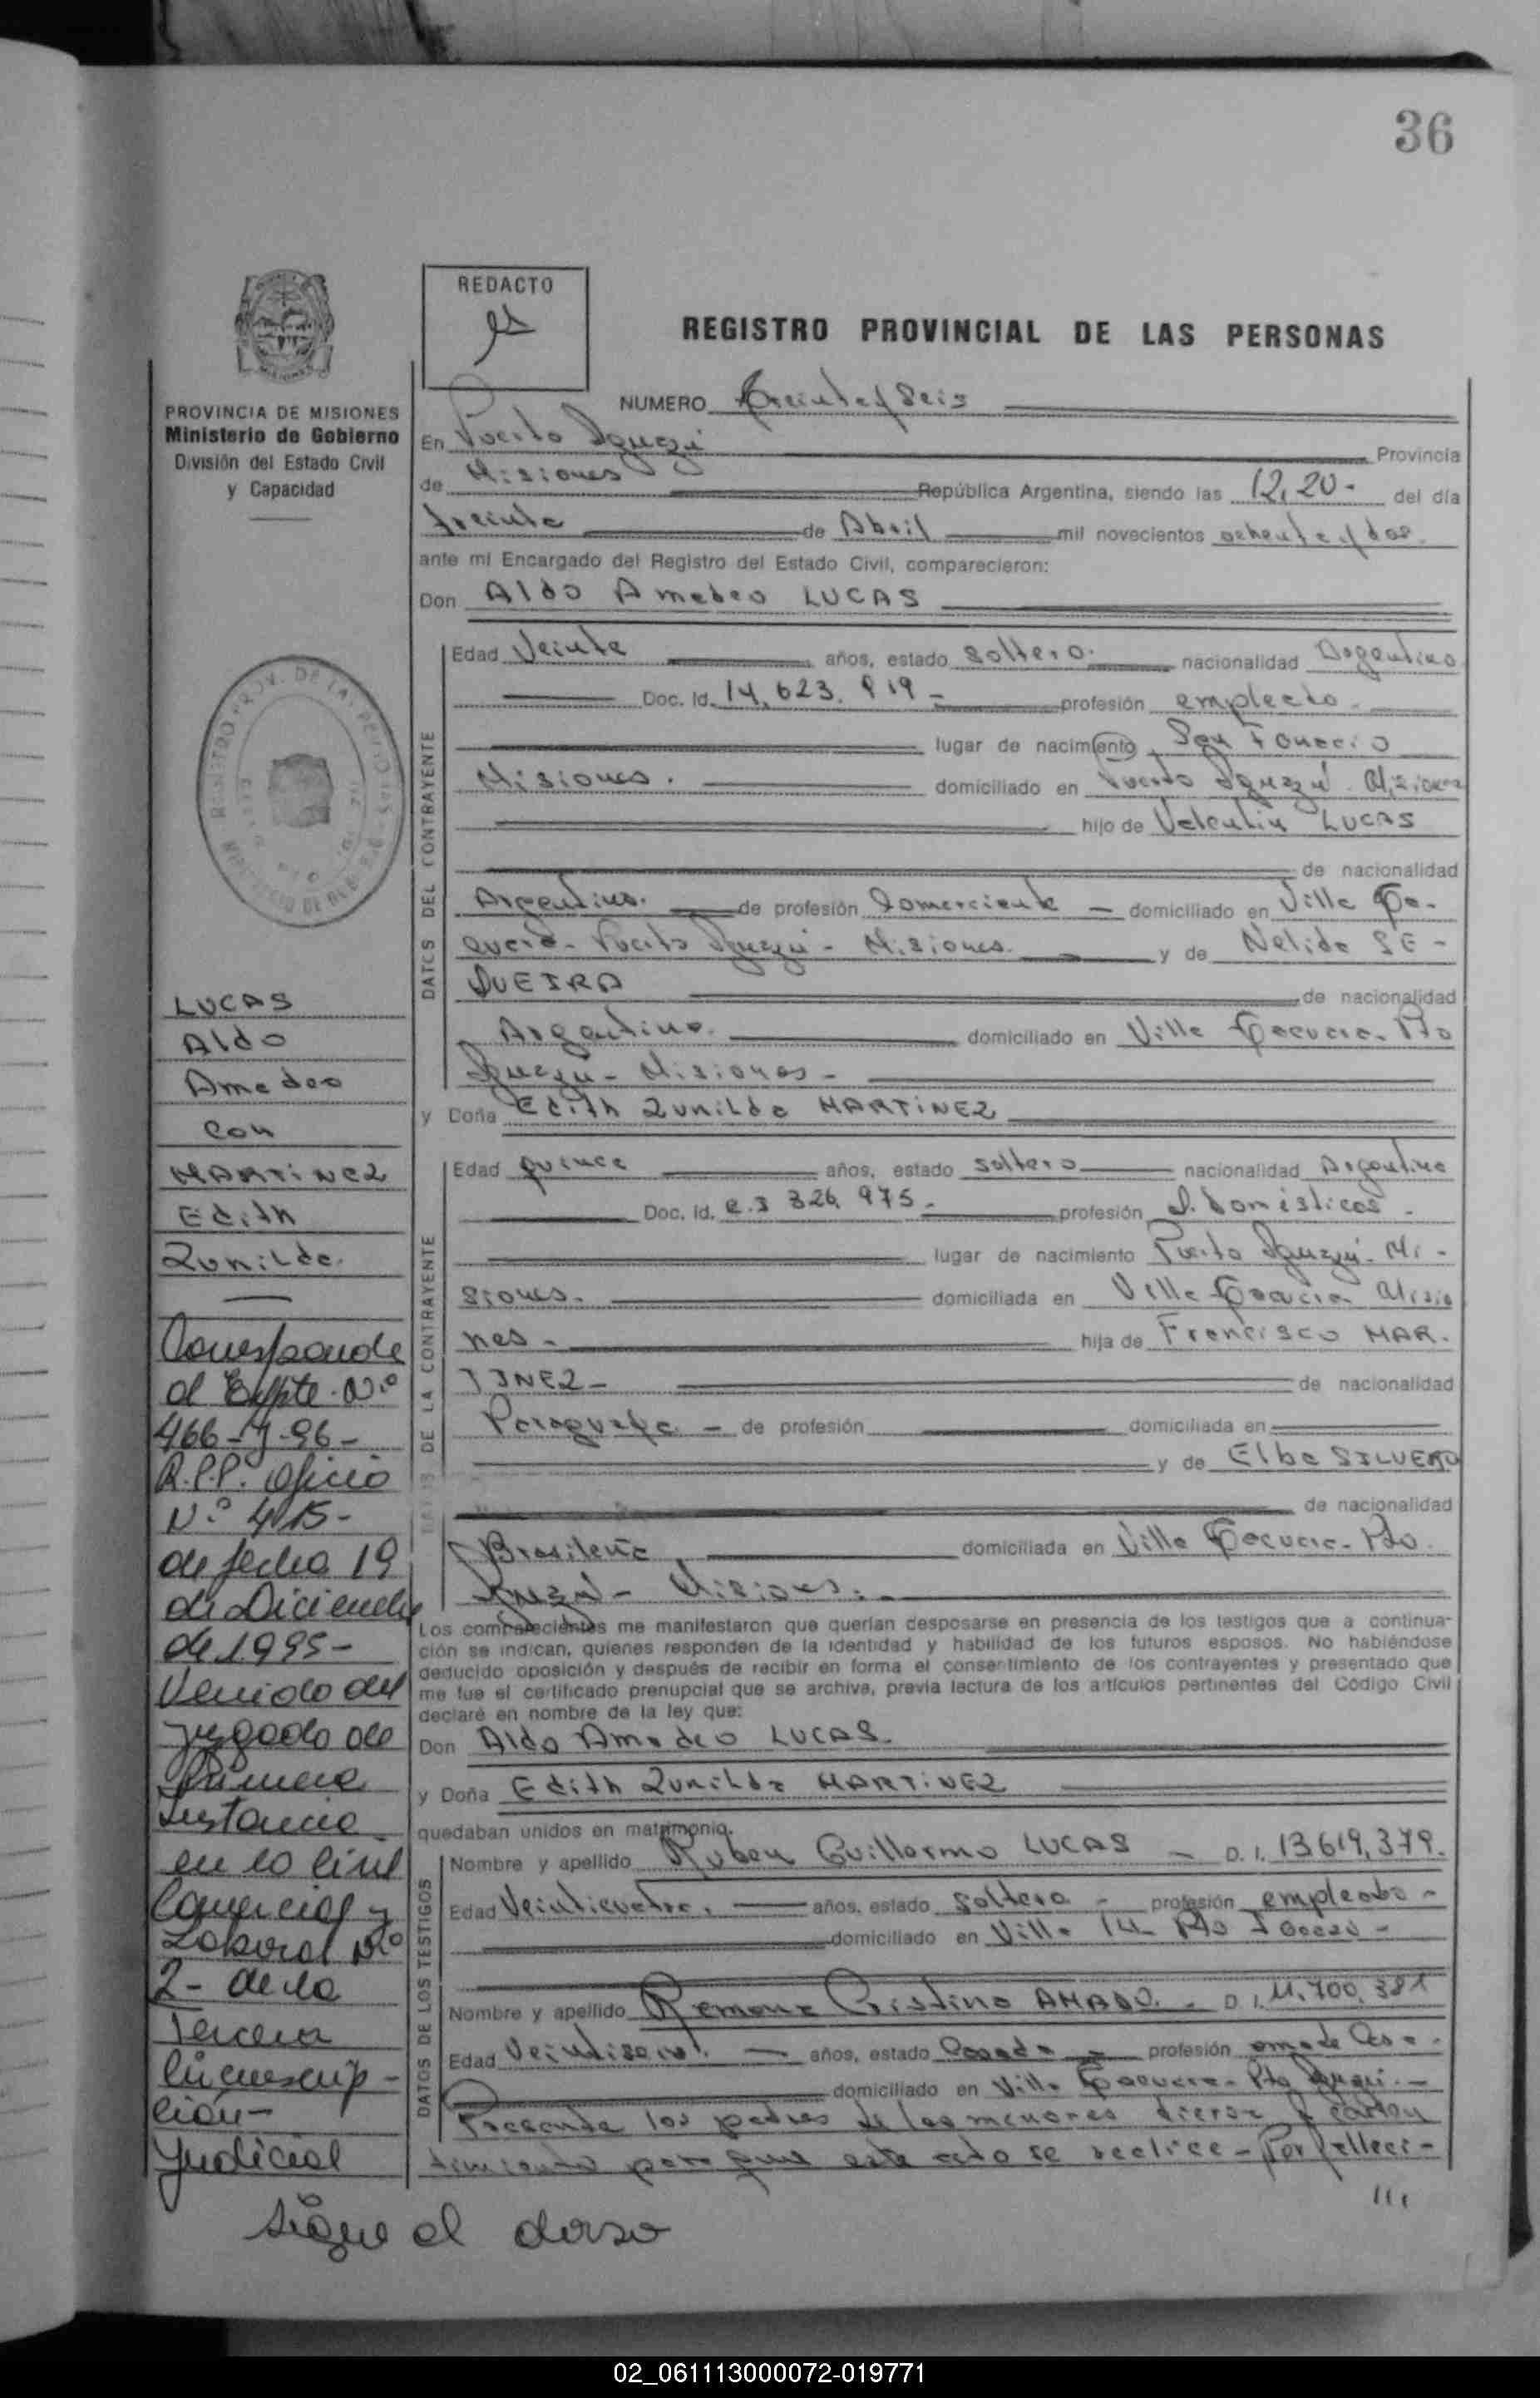 36
REDACTO
REGISTRO PROVINCIAL DE LAS PERSONAS
PROVINCIA DE MISIONES
Ministerio de Gobierno
División del Estado Civil
y Capacidad
NUMERO treinta y Seis
En Puerto Iguazú Provincia
de Misiones República Argentina, siendo las 12,20- del día
treinta de Abril mil novecientos ochenta y dos
ante mí Encargado del Registro del Estado Civil, comparecieron:
Don Aldo Amedeo LUCAS
DATOS DEL CONTRAYENTE
Edad Veinte años, estado soltero. nacionalidad Argentino
Doc. Id. 14.623.919- profesión empleado
lugar de nacimiento San Ignacio
Misiones. domiciliado en Puerto Iguazú Misiones
hijo de Valentin LUCAS
de nacionalidad
Argentina. de profesión Comerciante - domiciliado en Villa
Puerto Iguazú - Misiones. y de Nelida SE-
QUEIRA de nacionalidad
Argentina. domiciliado en Villa Pto
Iguazu - Misiones -
y Doña Edith Zunilda MARTINEZ
DATOS DE LA CONTRAYENTE
Edad quince años, estado soltera nacionalidad Argentina
Doc. Id. C.I 326.975- profesión Q. Domésticos -
lugar de nacimiento Puerto Iguazú - Mi -
siones. domiciliada en Villa Misio
nes - hija de Francisco MAR.
TINEZ - de nacionalidad
Paraguaya - de profesión domiciliada en
y de Elba SILVERO
de nacionalidad
Brasileña domiciliada en Villa Pto.
Iguazú - Misiones.
Los comparecientes me manifestaron que querían desposarse en presencia de los testigos que a continua-
ción se indican, quienes responden de la identidad y habilidad de los futuros esposos. No habiéndose
deducido oposición y después de recibir en forma el consentimiento de los contrayentes y presentado que
me fue el certificado prenupcial que se archiva, previa lectura de los artículos pertinentes del Código Civil
declaré en nombre de la ley que:
Don Aldo Amedeo LUCAS
y Doña Edith Zunilda MARTINEZ
quedaban unidos en matrimonio.
DATOS DE LOS TESTIGOS
Nombre y apellido Ruben Guillermo LUCAS - D.I. 13.619.379.
Edad Veinticuatro. años, estado soltero - profesión empleado -
domiciliado en Villa Pto
Nombre y apellido Ramona Cristina AMADO. - D.I. 11.700.381
Edad años, estado Casada - profesión ama de Casa.
domiciliado en Villa Pto Iguazú. -
Presente los padres de los menores dieron consen
timiento para que este acto se realice - Por falleci-
LUCAS
Aldo
Amedeo
con
MARTINEZ
Edith
Zunilda.
Corresponde
al Expte. Nº
466-Y-96-
R.P.P. Oficio
Nº 415-
de fecha 19
de Diciembre
de 1995-
Venido del
Juzgado de
Primera
Instancia
en lo Civil
Comercial y
Laboral Nº
2- de la
Tercera
Circunscrip-
ción-
Judicial
Sigue al dorso
02_061113000072-019771